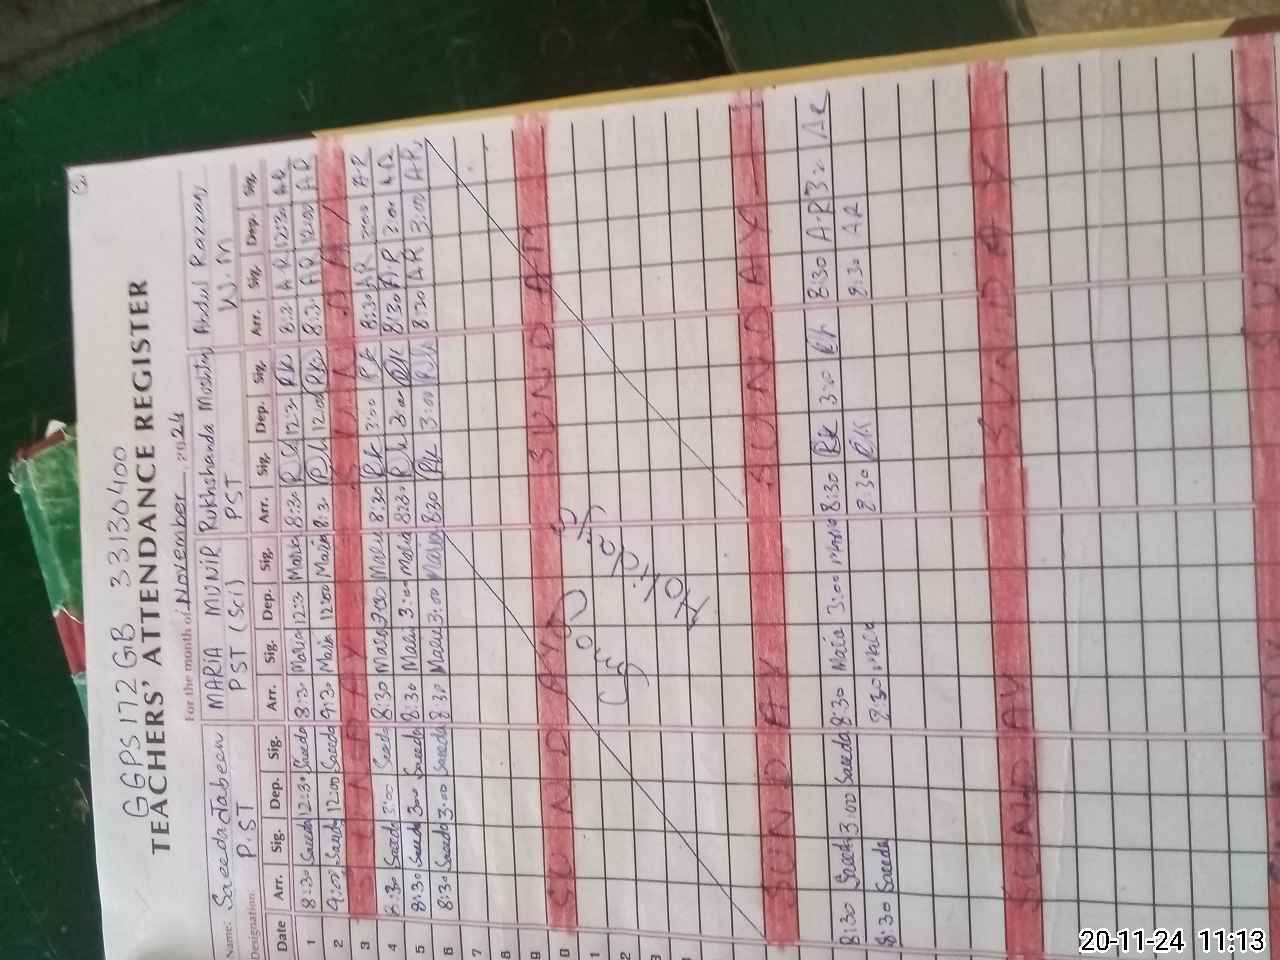 GGPS 172 GB 33130400
TEACHERS' ATTENDANCE REGISTER
For the month of November, 2024
Name: Saeeda Jabeen MARIA MUNIR Rukhshanda Abdul Razzaq
Designation: P.ST PST (Sci) PST W.M
Date Arr. Sig. Dep. Sig. Arr. Sig. Dep. Sig. Arr. Sig. Dep. Sig. Arr. Sig. Dep. Sig.
1 8:30 Saeeda 12:30 Saeeda 8:30 Maria 12:3 Maria 8:30 12:3 RK 8:3 AR 12:30 AR
2 9:00 Saeeda 12:00 Saeeda 9:30 Maria 12:00 Maria 8:3 12:00 RK 8:3 AR 12:00 AR
3 SUNDAY
4 8:30 Saeeda 3:00 Saeeda 8:30 Maria 3:00 Maria 8:30 RK 3:00 RK 8:30 AR 3:00 AR
5 8:30 Saeeda 3:00 Saeeda 8:30 Maria 3:00 Maria 8:30 RK 3:00 RK 8:30 AR 3:00 AR
6 8:30 Saeeda 3:00 Saeeda 8:30 Maria 3:00 Maria 8:30 RK 3:00 RK 8:30 AR 3:00 AR
7
8
9
SUNDAY
SUNDAY
8:30 Saeeda 3:00 Saeeda 8:30 Maria 3:00 Maria 8:30 RK 3:00 RK 8:30 AR 3: AR
8:30 Saeeda 8:30 Maria 8:30 RK 8:30 AR
SUNDAY
SUNDAY
20-11-24 11:13